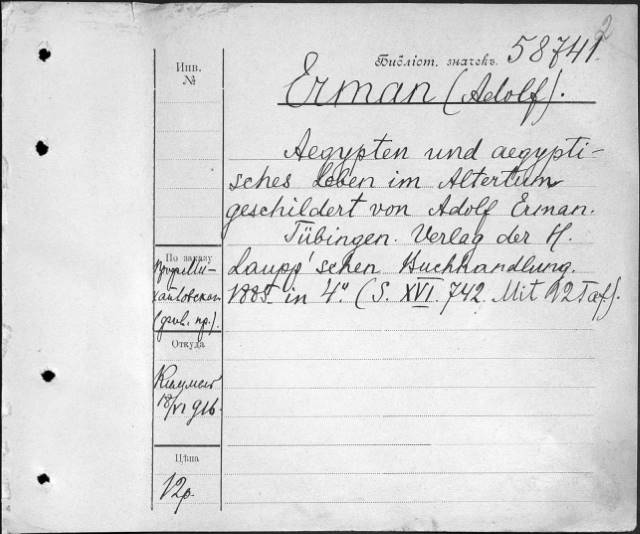 2
Библіот. значекъ 58741.
Инв.
№
Erman (Adolf).
Aegypten und aegypti-
sches Leben im Altertum
geschildert von Adolf Erman.
Tübingen. Verlag der H.
Laupp'schen Buchhandlung.
1885 in 4° (S. XVI. 742. Mit 12 Taf).
По заказу
(древ. пр.).
Откуда
18/VI 916.
Цѣна
12 р.